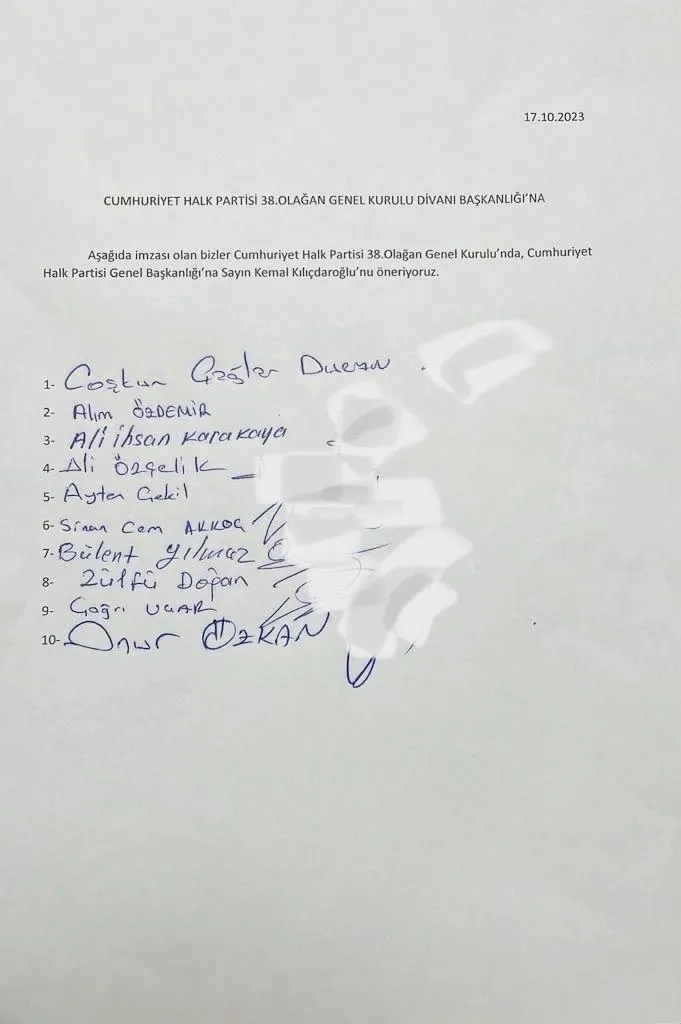 17.10.2023
CUMHURİYET HALK PARTİSİ 38.OLAĞAN GENEL KURULU DİVANI BAŞKANLIĞI'NA
Aşağıda imzası olan bizler Cumhuriyet Halk Partisi 38.Olağan Genel Kurulu'nda, Cumhuriyet
Halk Partisi Genel Başkanlığı'na Sayın Kemal Kılıçdaroğlu'nu öneriyoruz.
1- Coşkun Çağlar Duran
2- Alım ÖZDEMİR
3- Ali ihsan Karakaya
4- Ali Özçelik
5- Ayten Çekil
6- Sinan Cem AKKOÇ
7- Bülent Yılmaz
8- Zülfü Doğan
9- Çağrı UÇAR
10- Onur ÖZKAN